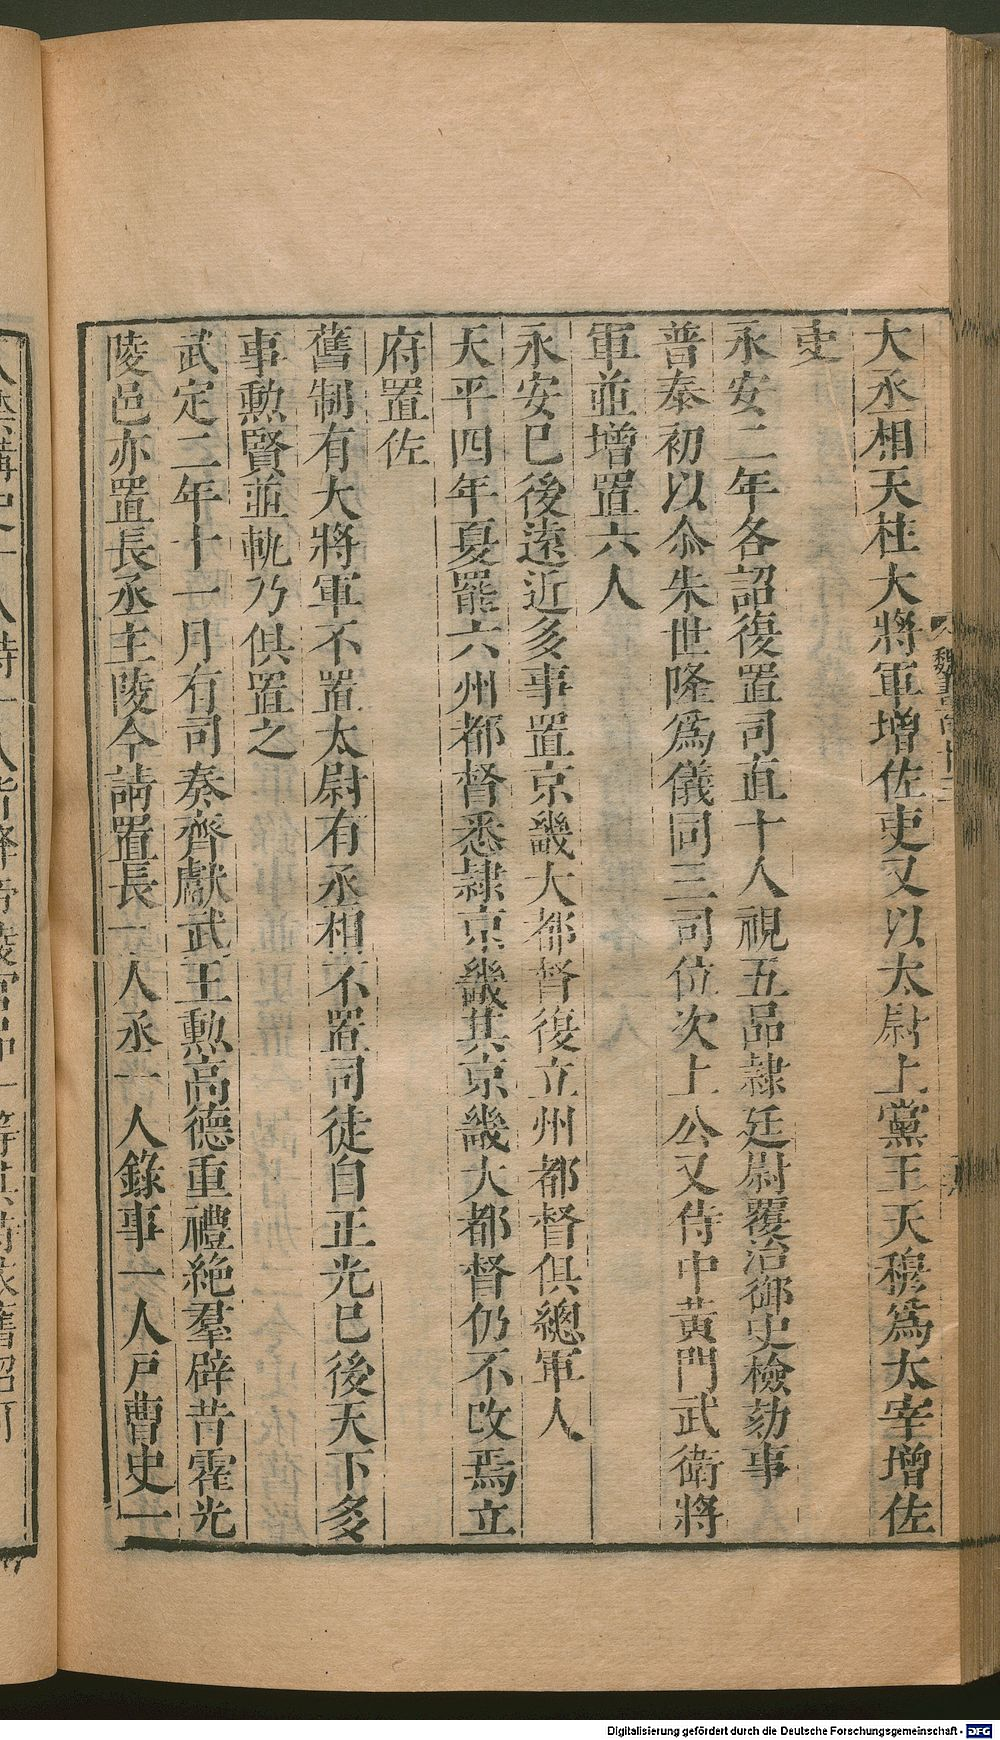 大丞相天柱大將軍增佐吏又以太尉上黨王天穆爲太宰增佐
吏
永安二年各詔復置司直十人視五品隸廷尉覆治御史檢劾事
普泰初以尒朱世隆爲儀同三司位次上公又侍中黃門武衛將
軍並增置六人
永安巳後遠近多事置京畿大都督復立州都督俱總軍人
天平四年夏罷六州都督悉隸京畿其京畿大都督仍不改焉立
府置佐
舊制有大將軍不置太尉有丞相不置司徒自正光巳後天下多
事勲賢並軌乃俱置之
武定二年十一月有司奏齊獻武王勲高德重禮絶羣辟昔霍光
陵邑亦置長丞主陵今請置長一人丞一人錄事一人戸曹史一
Digitalisierung gefördert durch die Deutsche Forschungsgemeinschaft - DFG